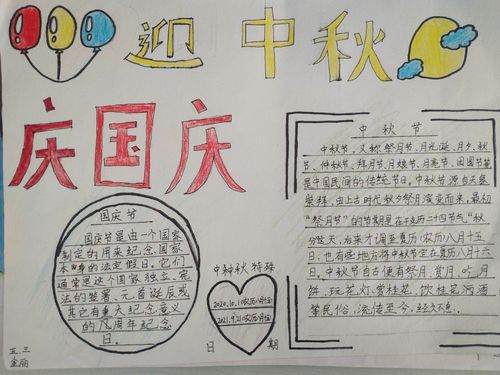 迎中秋
庆国庆
国庆节
国庆节是由一个国家
制定的用来纪念国家
本身的法定假日。它们
通常是这个国家独立、宪
法的签署、元首诞辰或
其它有重大纪念意义
的周年纪念
日。
中秋特殊
2020.10.1(农历八月十五)
2021.9.21(农历八月十五)
日期
中秋节
中秋节,又称祭月节、月光诞、月夕、秋
节、仲秋节、拜月节、月娘节、月亮节、团圆节等
是中国民间的传统节日。中秋节源自天象
崇拜,由上古时代秋夕祭月演变而来。最初
“祭月节”的节期是在干支历二十四节气“秋
分”这天,后来才调至夏历(农历)八月十五
日,也有些地方将中秋节定在夏历八月十六
日。中秋节自古便有祭月、赏月、吃月
饼、玩花灯、赏桂花、饮桂花酒
等民俗,流传至今,经久不息。
五.三